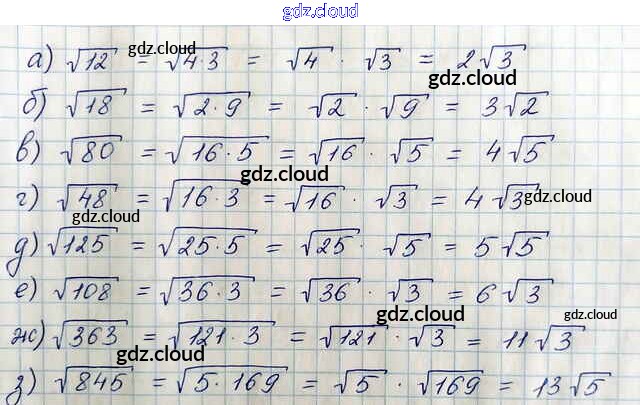 gdz.cloud
а) √12 = √4·3 = √4 · √3 = 2√3
gdz.cloud
gdz.cloud
б) √18 = √2·9 = √2 · √9 = 3√2
в) √80 = √16·5 = √16 · √5 = 4√5
gdz.cloud
г) √48 = √16·3 = √16 · √3 = 4√3
gdz.cloud
gdz.cloud
д) √125 = √25·5 = √25 · √5 = 5√5
е) √108 = √36·3 = √36 · √3 = 6√3
gdz.cloud
gdz.cloud
ж) √363 = √121·3 = √121 · √3 = 11√3
gdz.cloud
gdz.cloud
з) √845 = √5·169 = √5 · √169 = 13√5